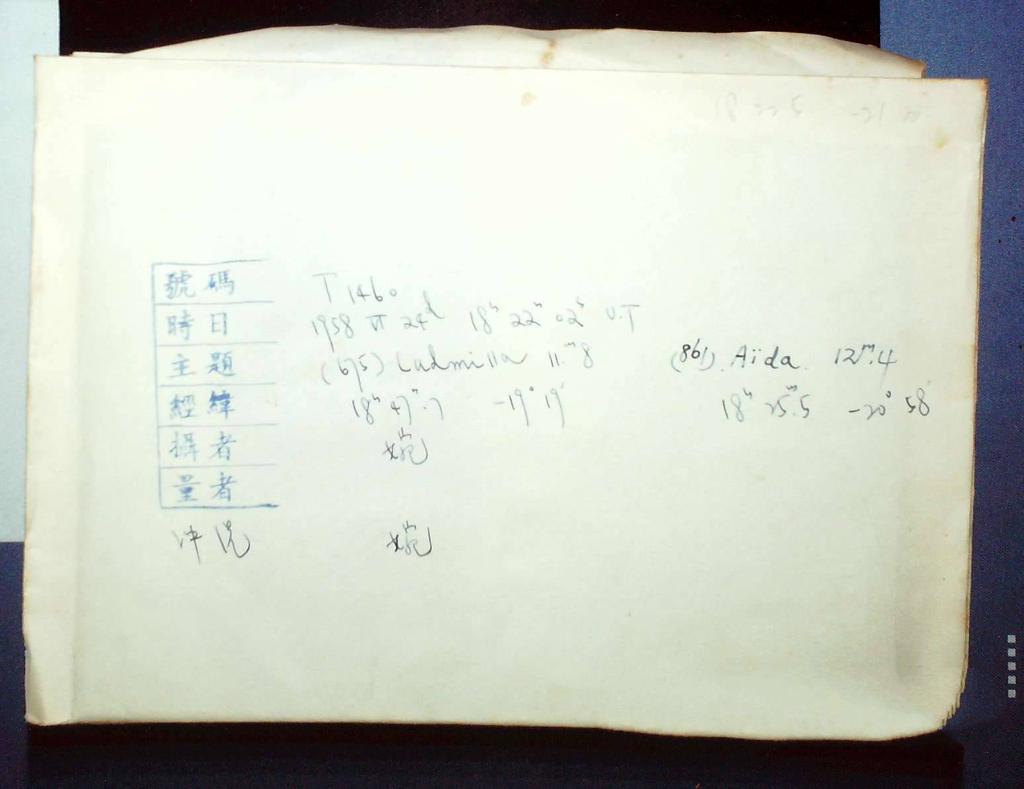 18 22 5 -21
號碼 T 1460
時日 1958 VI 24d 18h 22m 02s U.T
主題 (675) Ludmilla 11.m8 (861) Aïda 12m.4
經緯 18h 47m.7 -19° 19' 18h 25m.5 -20° 58'
攝者 婉
量者
冲洗 婉